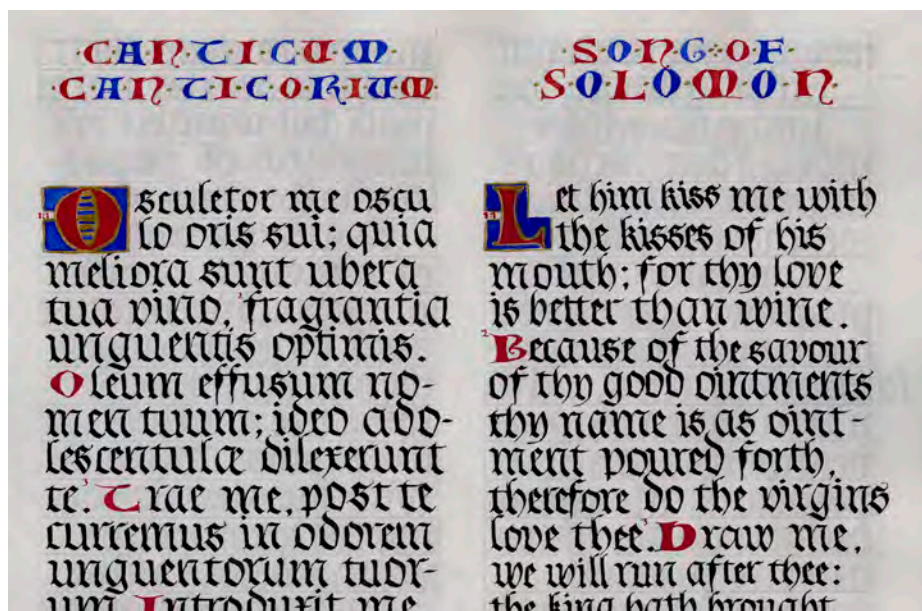 CANTICUM
CANTICORIUM
Osculetor me oscu
lo oris sui; quia
meliora sunt ubera
tua vino, 2 fragrantia
unguentis optimis.
Oleum effusum no-
men tuum; ideo ado-
lescentulæ dilexerunt
te. 3 Trae me, post te
curremus in odorem
unguentorum tuor-
um. Introduxit me
SONG OF
SOLOMON
Let him kiss me with
the kisses of his
mouth; for thy love
is better than wine.
2 Because of the savour
of thy good ointments
thy name is as oint-
ment poured forth,
therefore do the virgins
love thee. 3 Draw me,
we will run after thee:
the king hath brought